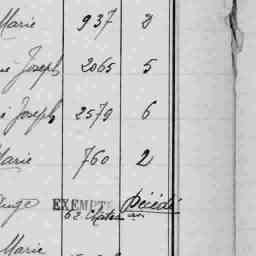 Marie 937 8
Joseph 2065 5
Joseph 2579 6
Marie 760 2
EXEMPT Décédé
62
Marie